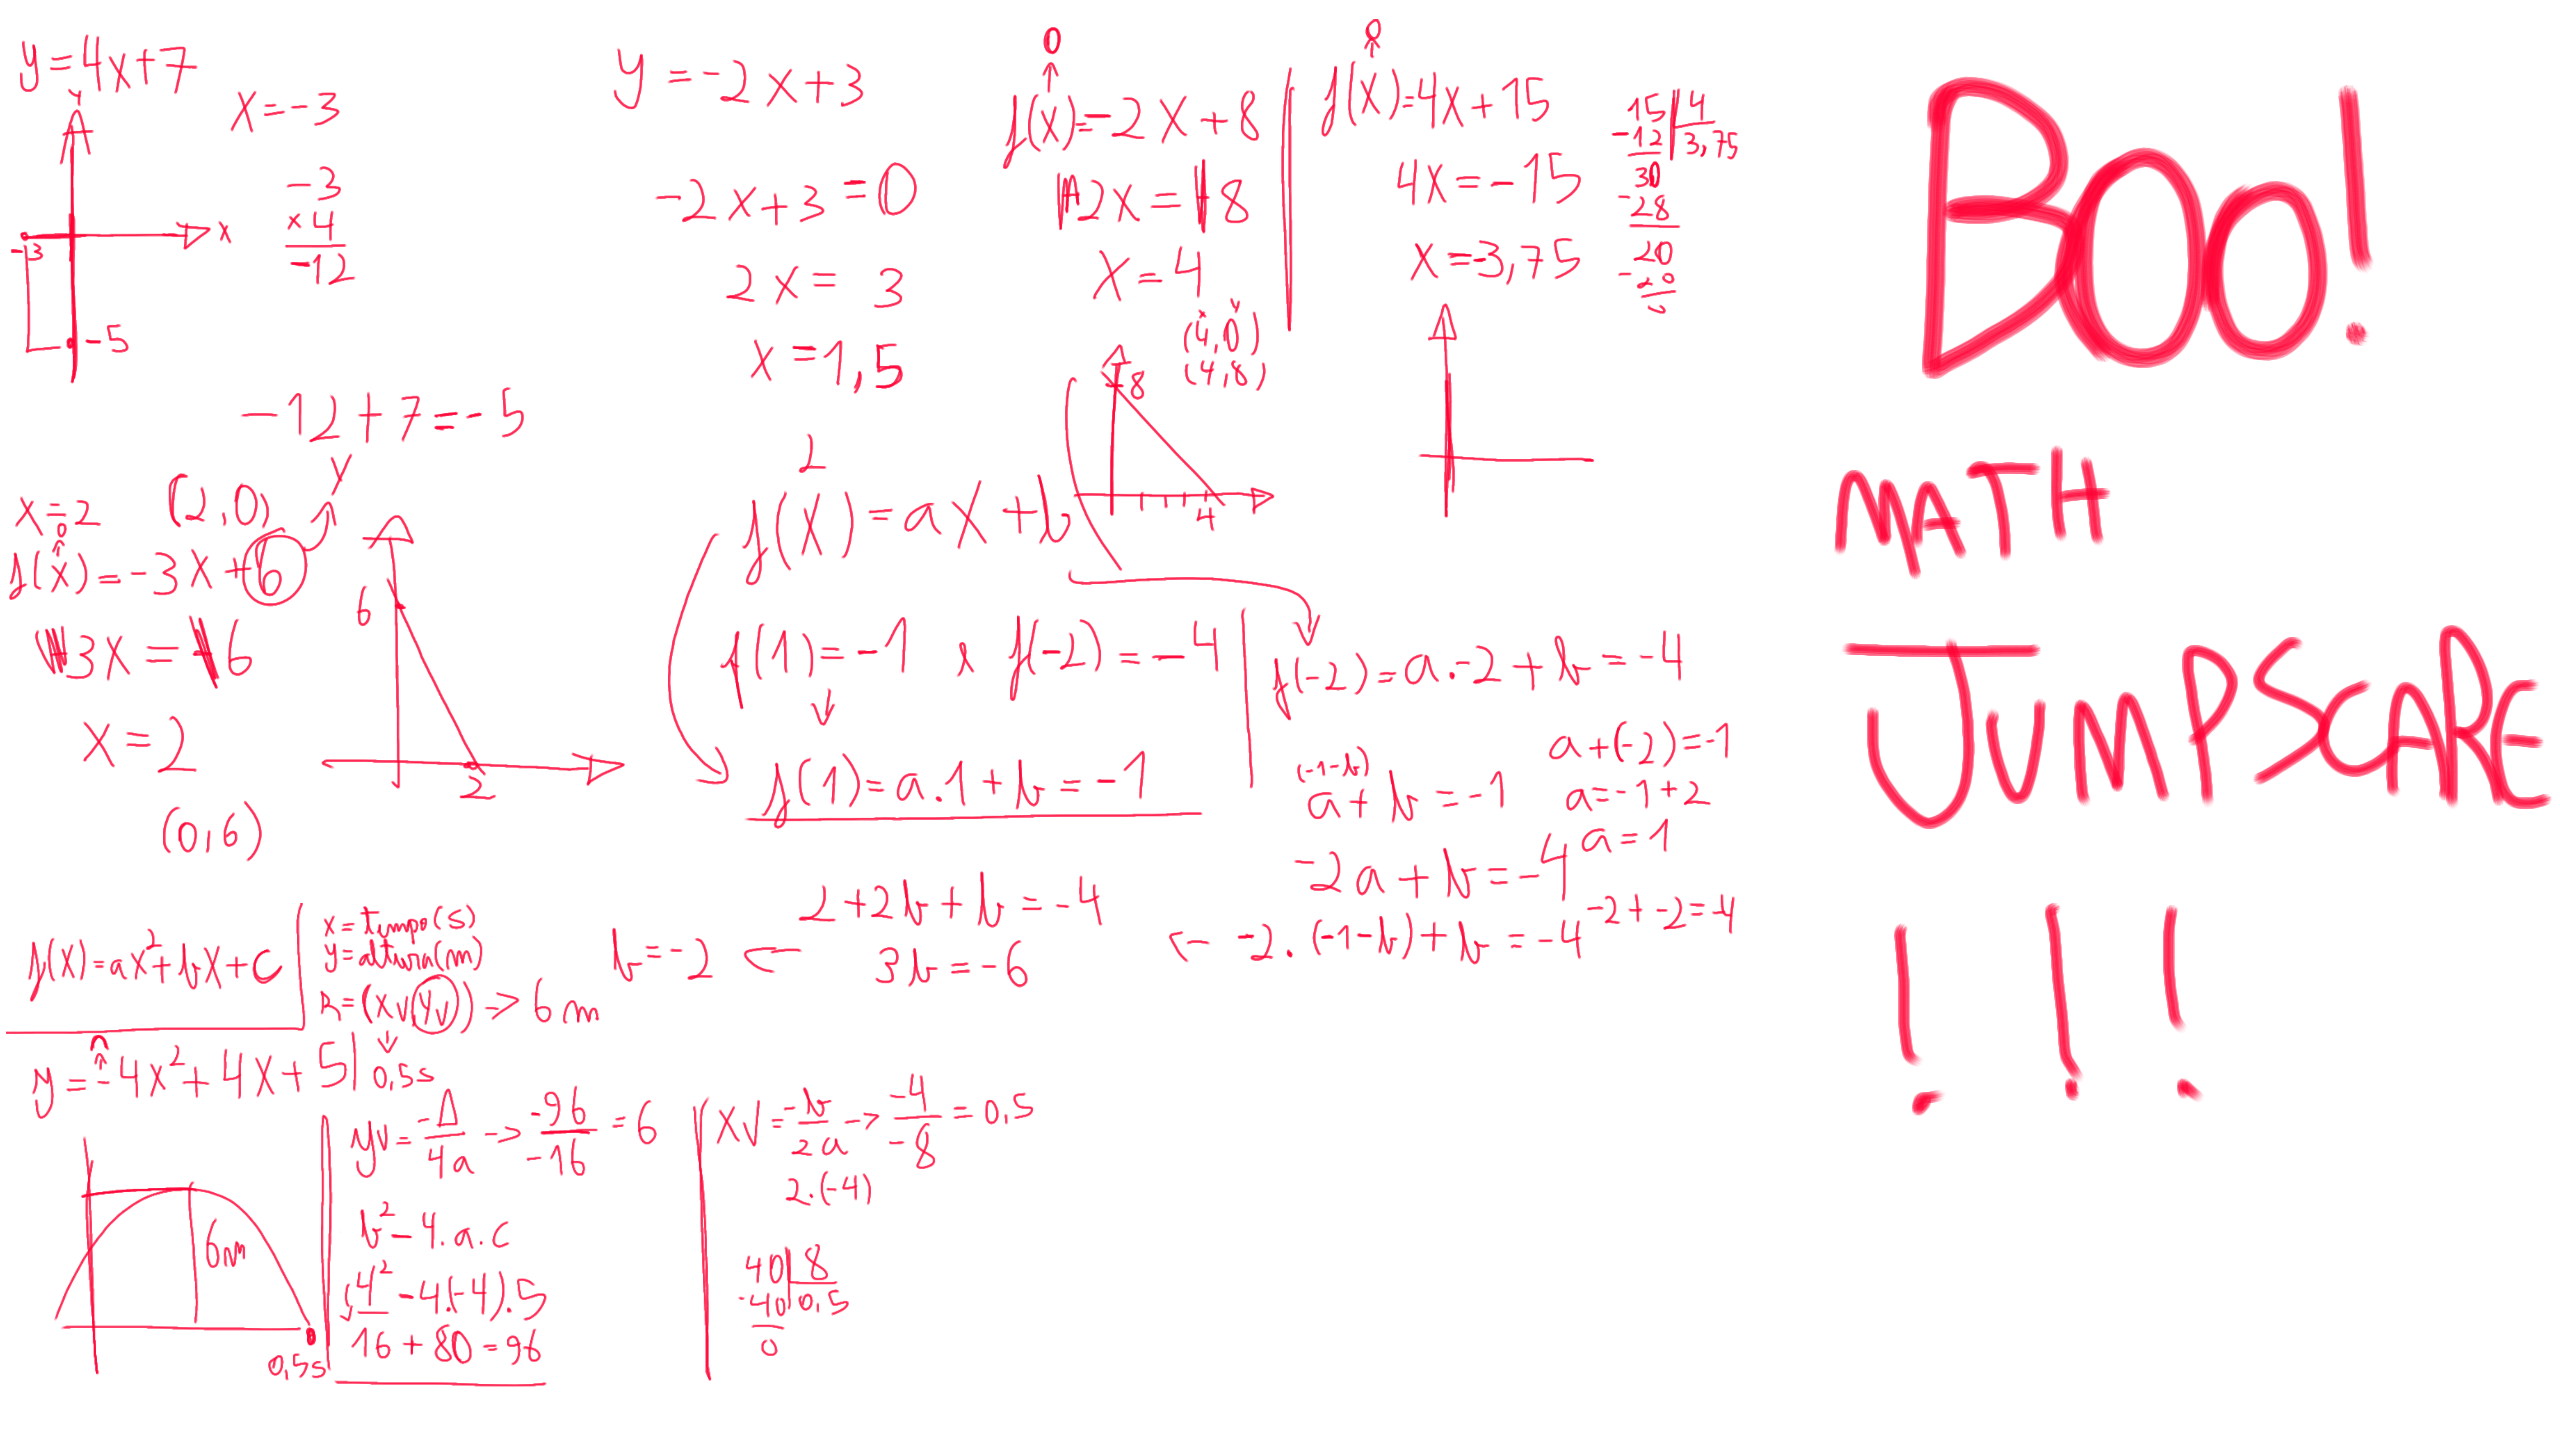 y=4x+7
y
x=-3
-3
×4
-12
x
-3
-5
-12+7=-5
y=-2x+3
-2x+3=0
2x= 3
x=1,5
0
↑
f(x)=-2x+8
2x=8
x=4
x y
(4,0)
(4,8)
8
4
0
↑
f(x)=4x+15
4x=-15
x=-3,75
15|4
-12 3,75
30
-28
20
-20
0
x=2 (2,0)
y
0
↑
f(x)=-3x+6
3x=6
x=2
(0,6)
6
2
f(x)=ax+b
f(1)=-1 e f(-2)=-4
↓
f(1)=a.1+b=-1
f(-2)=a.-2+b=-4
(-1-b)
a+b=-1
-2a+b=-4
← -2.(-1-b)+b=-4
a+(-2)=-1
a=-1+2
a=1
-2+-2=-4
2+2b+b=-4
3b=-6
b=-2 ←
f(x)=ax²+bx+c
x=tempo(s)
y=altura(m)
R=(xv,yv)→6m
↓
0,5s
y=-4x²+4x+5
6m
0,5s
yv=-Δ/4a → -96/-16 = 6
b²-4.a.c
4²-4(-4).5
16+80=96
xv=-b/2a → -4/-8 = 0,5
2.(-4)
40|8
-40 0,5
0
BOO!
MATH
JUMPSCARE
!!!